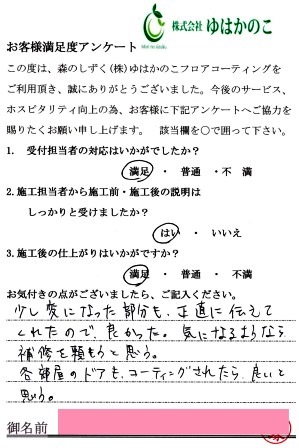 株式会社 ゆはかのこ
お客様満足度アンケート
この度は、森のしずく(株)ゆはかのこフロアコーティングを
ご利用頂き、誠にありがとうございました。今後のサービス、
ホスピタリティ向上の為、お客様に下記アンケートへご協力を
賜りたくお願い申し上げます。 該当欄を〇で囲って下さい。
1. 受付担当者の対応はいかがでしたか？
満足 ・ 普通 ・ 不 満
2.施工担当者から施工前・施工後の説明は
しっかりと受けましたか？
はい ・ いいえ
3.施工後の仕上がりはいかがですか？
満足 ・ 普通 ・ 不満
お気付きの点がございましたら、ご記入ください。
少し変になった部分も、正直に伝えて
くれたので、良かった。気になるようなら
補修を頼もうと思う。
各部屋のドアも、コーティングされたら、良いと
思う。
御名前